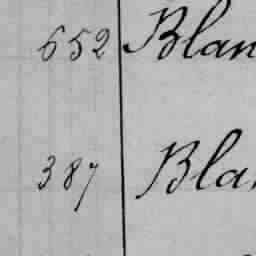 652 Blan
387 Bla